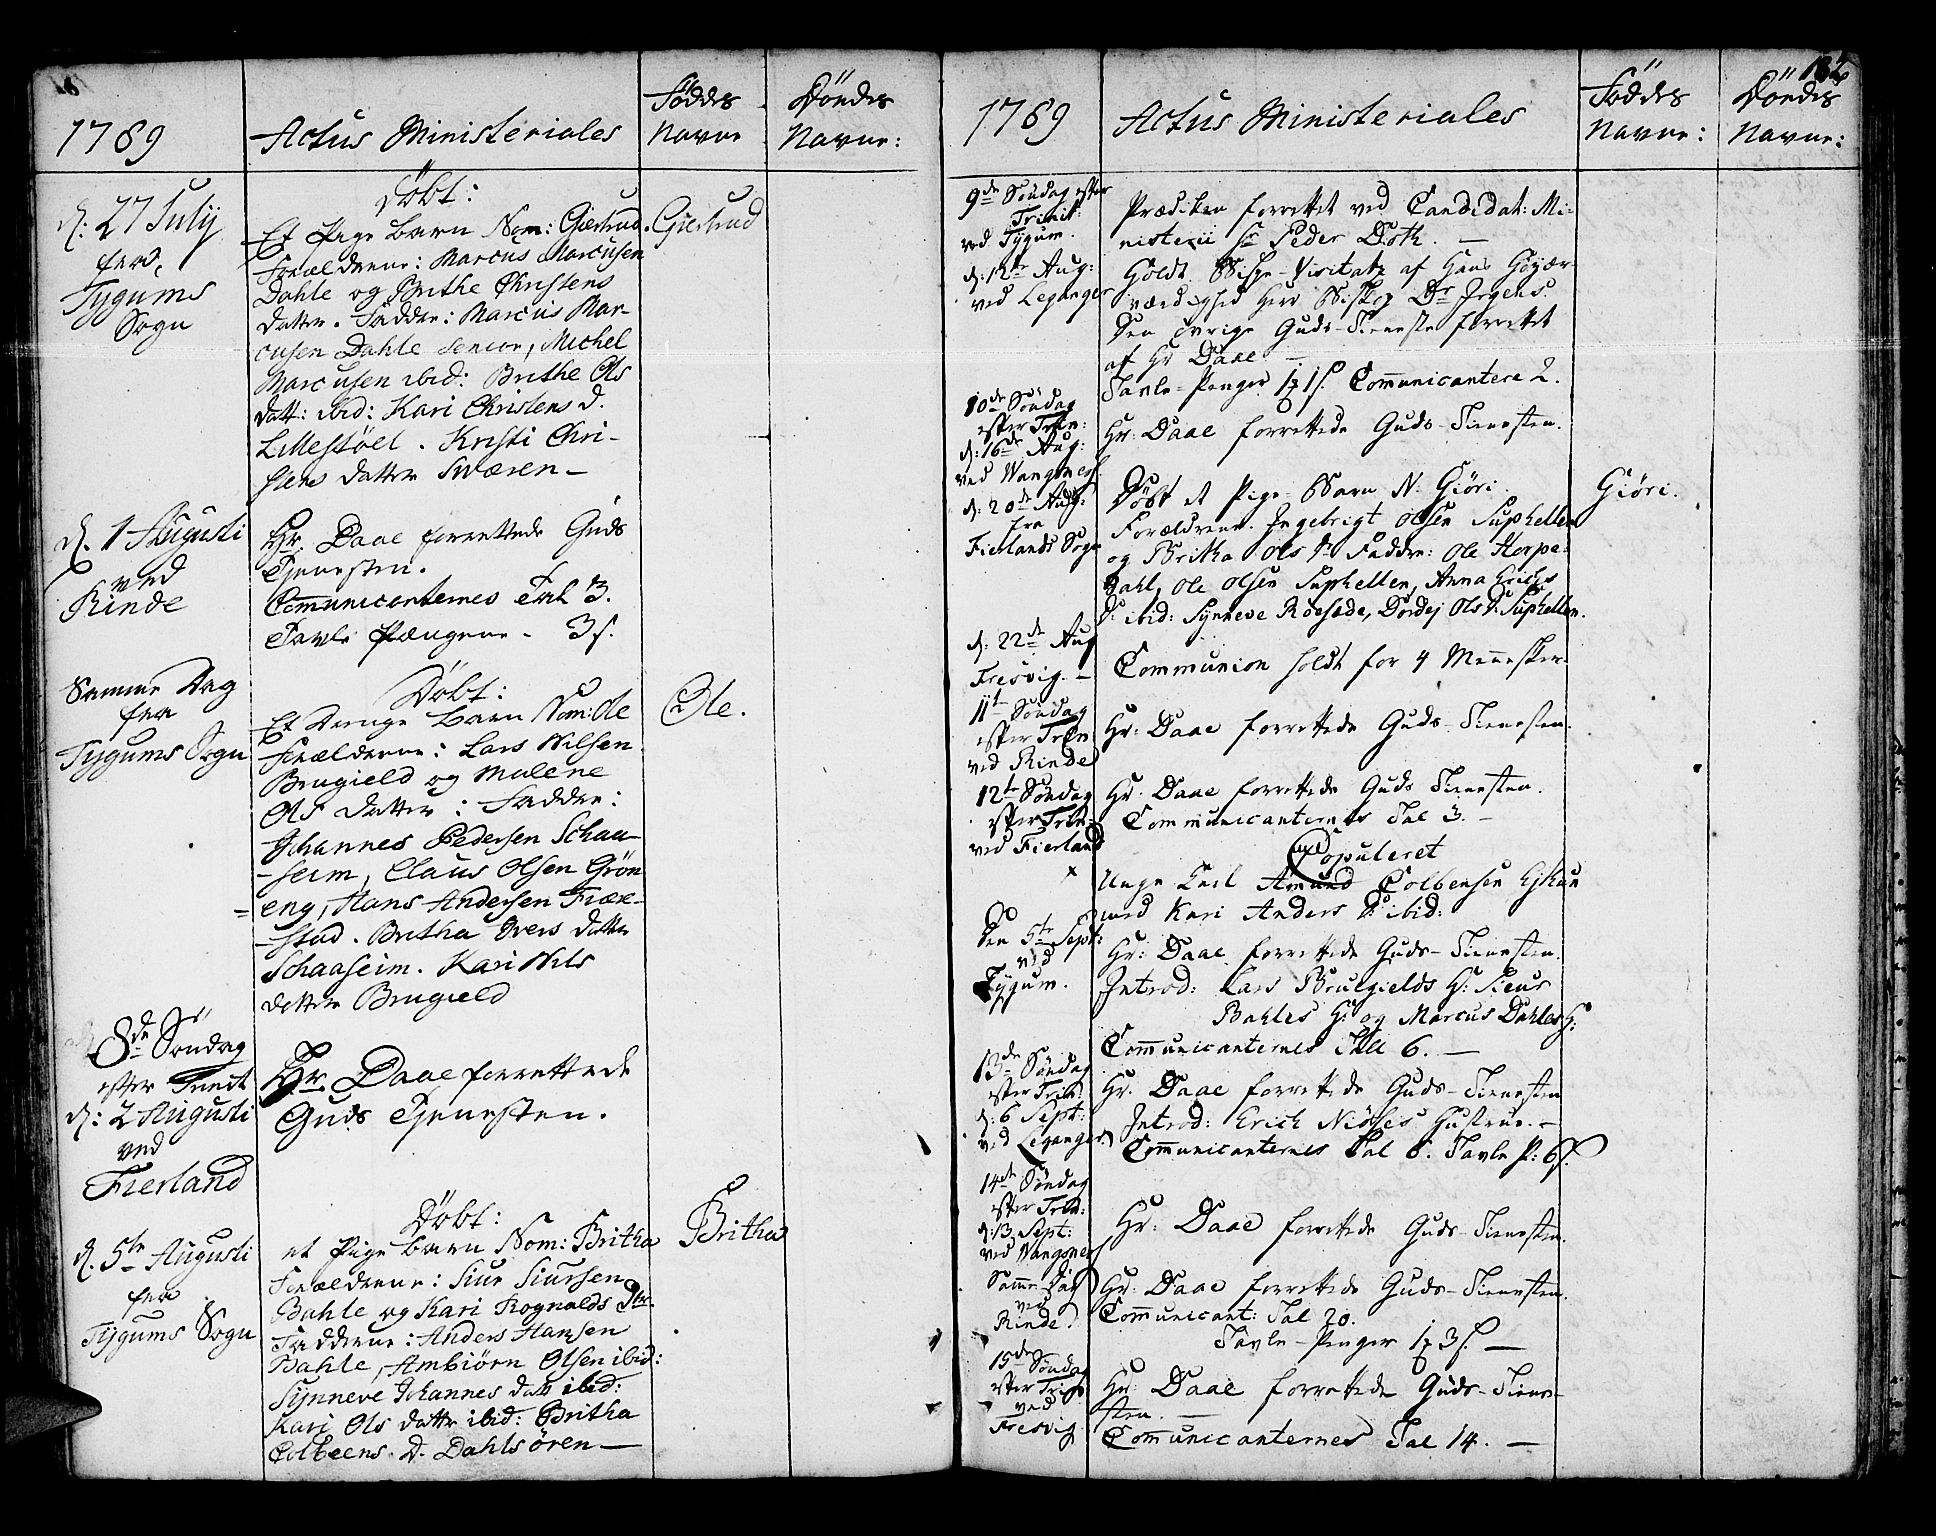 1789
Actus Ministeriales
Föddes
Navne
Döndes
Navne:
d: 27 Julij
fra
Tygums
Sogn
Döbt:
Et Pige Barn Nom: Giertrud.
Giertrud
Forældrene: Marcus Marcusen
Dahle og Brithe Christens
datter. Faddre: Marcus Mar-
cusen Dahle senior, Michel
Marcusen ibid: Brithe Ols
datt: ibid: Kari Christens d.
Lillestöel. Kristi Chri-
stens datter Sværen-
d. 1 Augusti
ved
Rinde
Hr. Daae forrettede Guds
Tjenesten.
Communicanternes Tal 3.
Tavle Pængene - 3 s.
Samme Dag
fra
Tygums Sogn
Döbt:
Et Drenge Barn Nom: Ole
Ole.
Forældrene: Lars Nilsen
Brugield og Malene
Ols datter: Faddre:
Johannes Pedersen Schaa-
-seim, Claus Olsen Grön
=eng, Hans Andersen Fiære-
-stad. Britha Ivers datter
Schaaseim. Kari Nils
datter Brugield
8de Söndag
efter Trinit
d: 2 Augusti
ved
Fierland
Hr. Daae forrettede
Guds Tjenesten.
d. 5te Augusti
fra
Tygums Sogn
Döbt:
et Pige Barn Nom: Britha
Britha
Forældrene: Siur Siursen
Bahle og Kari Rognalds Dtr.
Faddrene: Anders Hansen
Bahle, Ambiörn Olsen ibid:
Synneve Johannes datt ibid:
Kari Ols dattr ibid: Britha
Colbeens. D. Dahlsören-
1789
Actus Ministeriales
Föddes
Navne:
Döndes
Navne:
9de Söndag efter
Trinit:
ved Tygum.
Prædiken forrettet ved Candidat: Mi-
nisterii Sr Peder Doth. -
d: 12te Aug:
ved Leganger
Holdt Bispe-Visitatz af Hans Höyær-
værdighed Herr Biskop Dr Irgens.
Den övrige Guds-Tieneste forrettet
af Hr Daae -
Tavle-Penger 1 1 s. Communicantere 2.
10de Söndag
efter Trin:
d: 16de Aug:
ved Wangsnes
Hr: Daae forrettede Guds-Tienesten.
d: 20de Aug:
fra
Fierlands Sogn
Döbt et Pige-Barn N: Giöri.
Giöri.
Forældrene. Ingebrigt Olsen Suphellen
og Britha Ols Dr. Faddre: Ole Horpe-
dahl, Ole Olsen Suphellen, Anna Erichs
Dr. ibid: Synneve Roesæde, Dordej Ols Dr. Suphellen.
d: 22de Aug
Fresvig. -
Communion holdt for 4 Mennesker.
11te Söndag
efter Trin
ved Rinde
Hr: Daae forrettede Guds-Tienesten.
12te Söndag
efter Trin:
ved Fierland
Hr: Daae forrettede Guds Tienesten.
Communicanternes Tal 3. -
Copuleret
Unge Karl Amund Colbensen Eskun
med Kari Anders Dr. ibid:
Den 5te Sept:
ved
Tygum.
Hr: Daae forrettede Guds-Tienesten.
Introd: Lars Bruegields H: Sieur
Bahles H: og Marcus Dahles H:
Communicanternes Tall 6. -
13de Söndag
efter Trin:
d: 6 Sept:
ved Leganger
Hr. Daae forrettede Guds-Tienesten
Introd: Erich Niöses Hustrue. -
Communicanternes Tal 6. Tavle P: 6 s.
14de Söndag
efter Trin:
d: 13 Sept:
ved Wangsnes
Hr: Daae forrettede Guds-Tienesten.
Samme Dag
ved
Rinde
Hr: Daae forrettede Guds-Tienesten.
Communicant: Tal 20.
Tavle-Penger 1 3 s. -
15de Söndag
efter Trin
ved
Fresvig
Hr: Daae forrettede Guds-Tiene-
sten. -
Communicanternes Tal 14. -